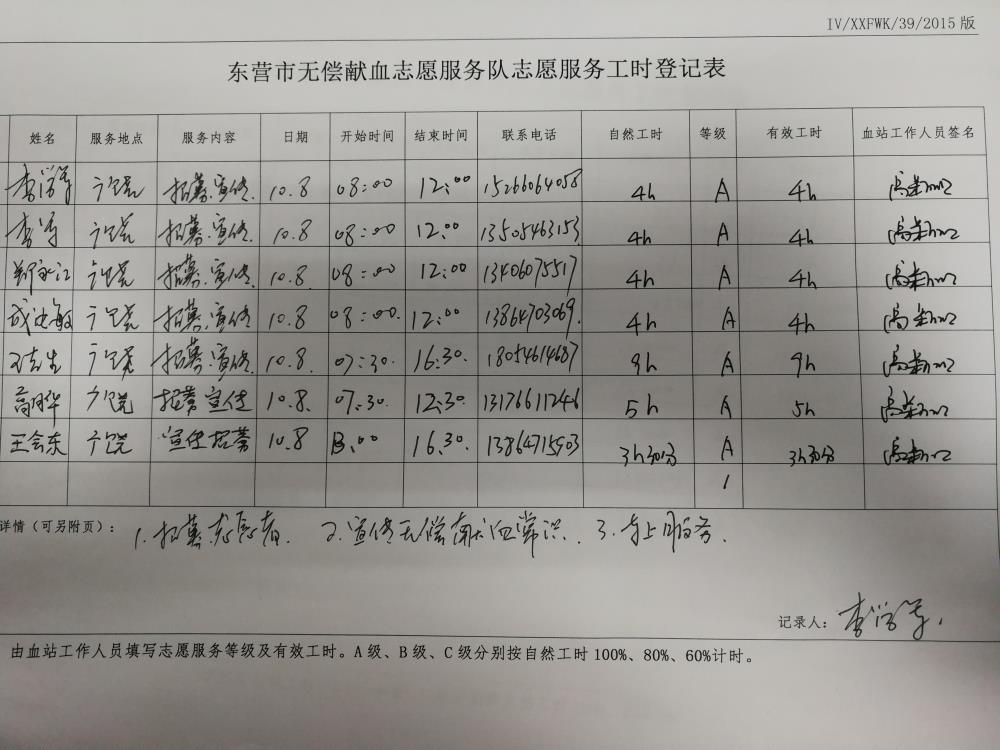 IV/XXFWK/39/2015 版
东营市无偿献血志愿服务队志愿服务工时登记表
姓名 服务地点 服务内容 日期 开始时间 结束时间 联系电话 自然工时 等级 有效工时 血站工作人员签名
李学军 招募.宣传. 10.8 08:00 12:00 15266064058 4h A 4h
招募.宣传. 10.8 08:00 12:00 13505463153 4h A 4h
郑永江 招募.宣传. 10.8 08:00 12:00 13406075517 4h A 4h
招募.宣传 10.8 08:00. 12:00 13864703069. 4h A 4h
招募.宣传 10.8. 07:30. 16:30. 18054614687 9h A 9h
招募宣传 10.8. 07.30. 12:30 13176611246 5h A 5h
王会东 宣传招募 10.8 13.00 16.30. 13864715903 3h30分 A 3h30分
详情（可另附页）： 1.招募志愿者. 2.宣传无偿献血常识. 3.上服务.
记录人： 李学军.
由血站工作人员填写志愿服务等级及有效工时。A 级、B 级、C 级分别按自然工时 100%、80%、60%计时。